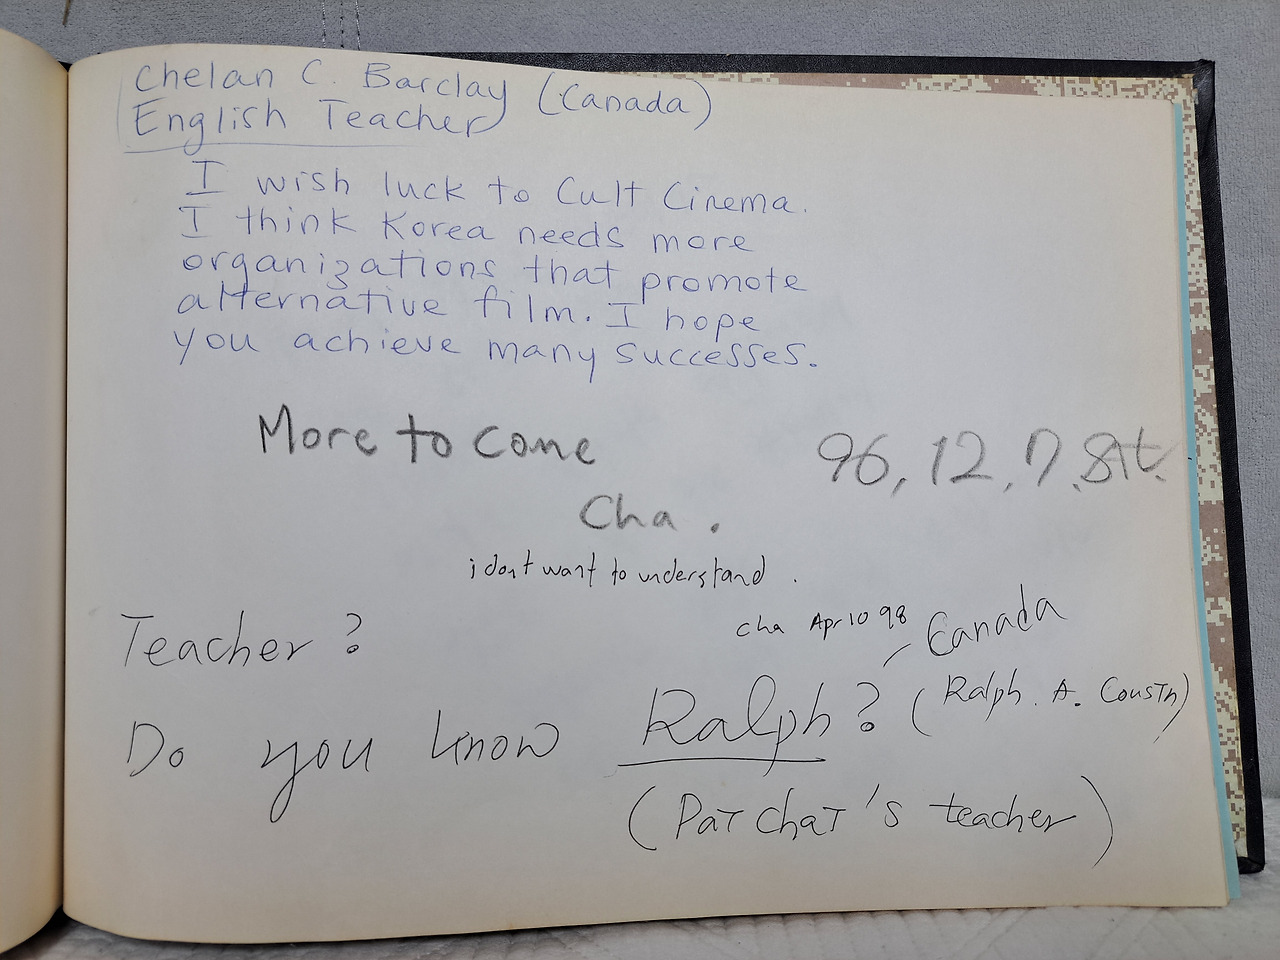 Chelan C. Barclay (Canada)
English Teacher
I wish luck to Cult Cinema.
I think Korea needs more
organizations that promote
alternative film. I hope
you achieve many successes.
More to come
96, 12, 7, sat.
Cha.
i dont want to understand.
cha Apr 10 98
Canada
Teacher?
Do you know Ralph? (Ralph. A. Cousin)
(Patchat's teacher)